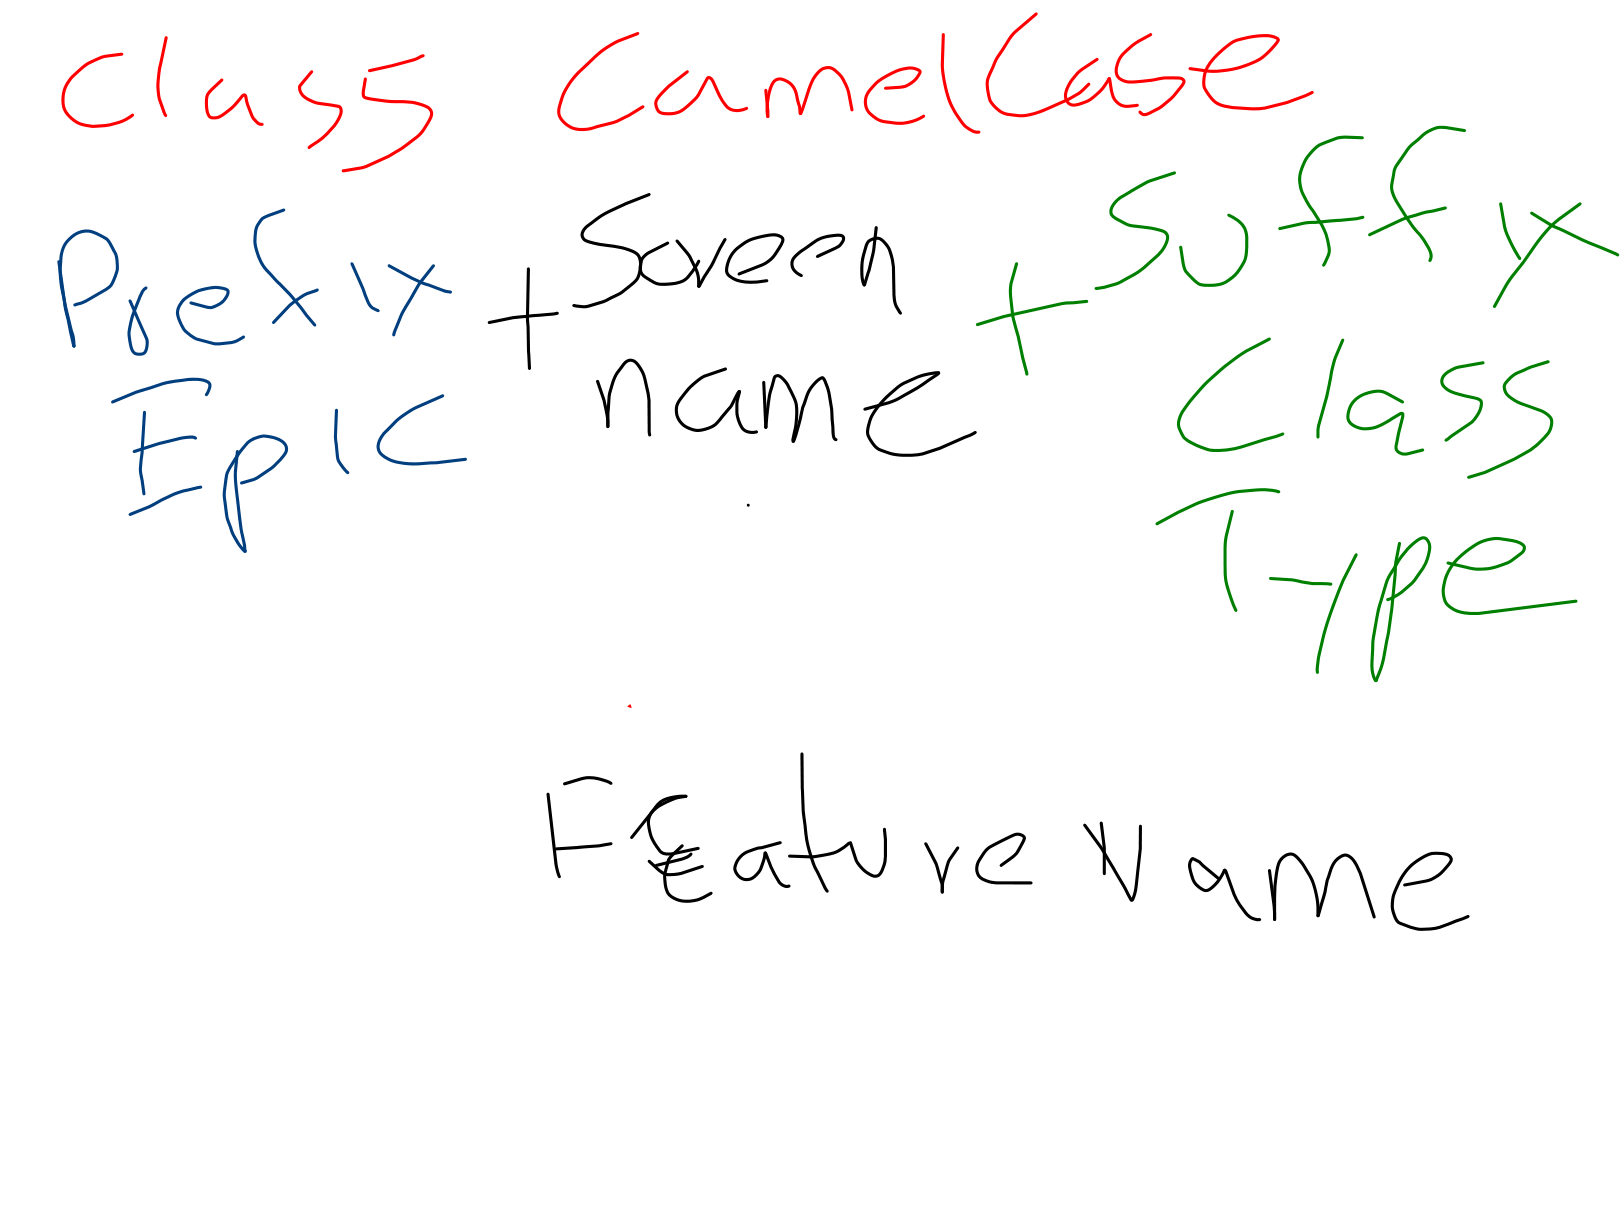 Class CamelCase
Prefix + Screen + Suffix
Epic name Class
Type
Feature Name